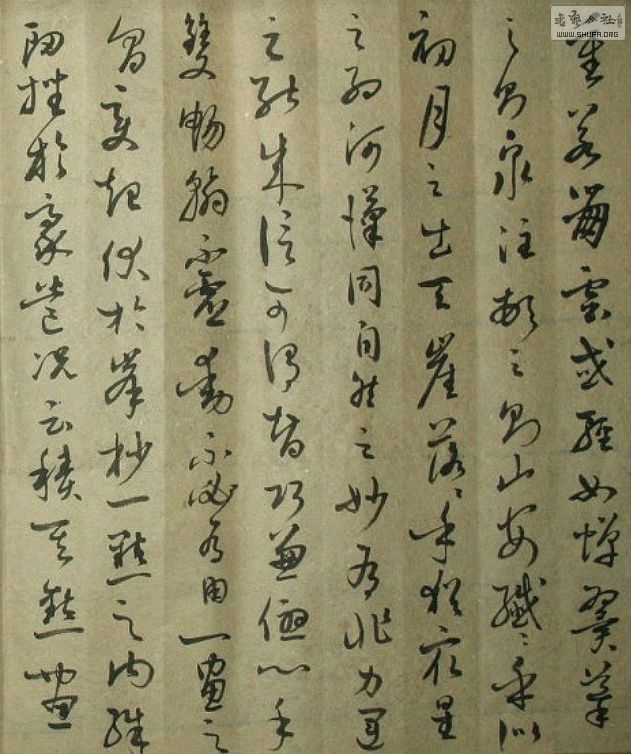 書藝公社
WWW.SHUFA.ORG
重若崩雲或輕如蟬翼導
之則泉注頓之則山安纖〻乎似
初月之出天崖落〻乎猶衆星
之列河漢同自然之妙有非力運
之能成信可謂智巧兼優心手
雙暢翰不虛動下必有由一畫之
間變起伏於峯杪一點之內殊
衄挫於豪芒況云積其點畫